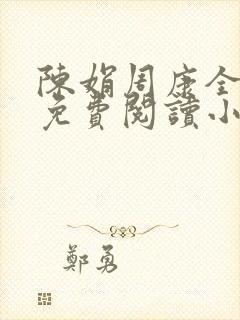 陳娟周康全
免費閱讀小
鄭勇